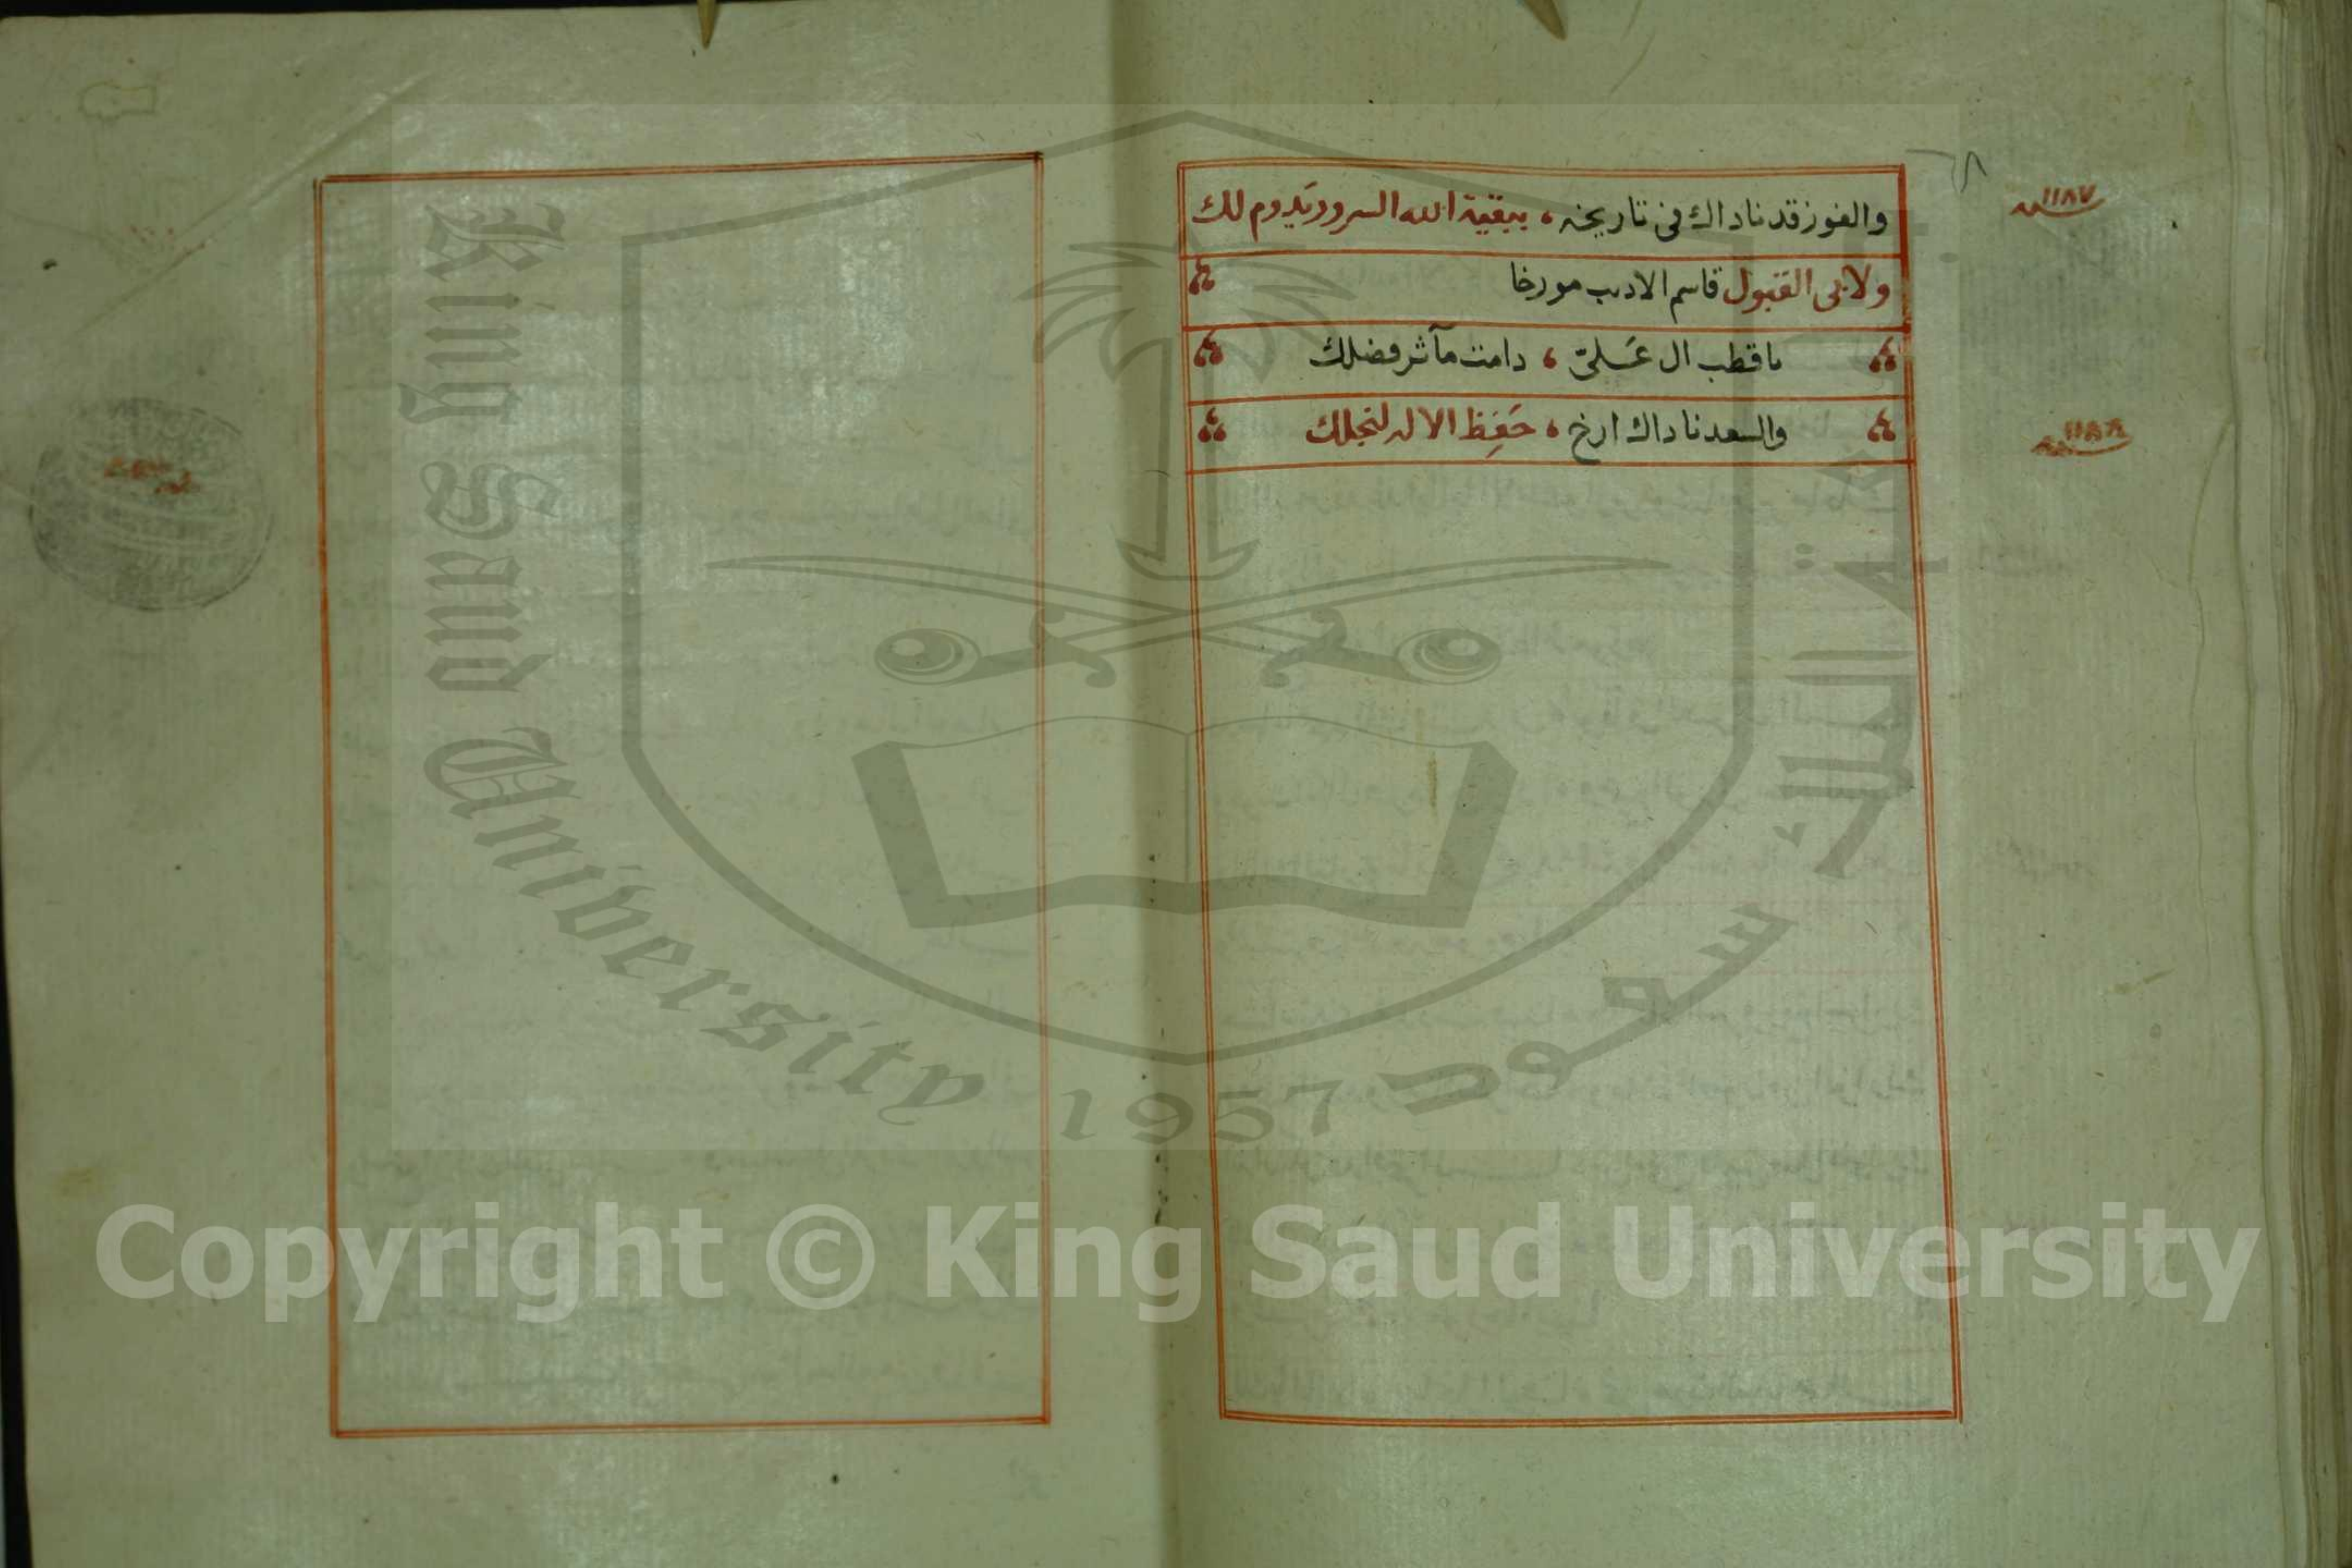 والفوز قد ناداك في تاريخه ، ببقية الله السرور يدوم لك
سنة ١١٨٧
ولابي القبول قاسم الاديب مورخا
يا قطب ال علي ، دامت مآثر فضلك
والسعد ناداك ارخ ، حفظ الاله لنجلك
King Saud University
1957
Copyright © King Saud University